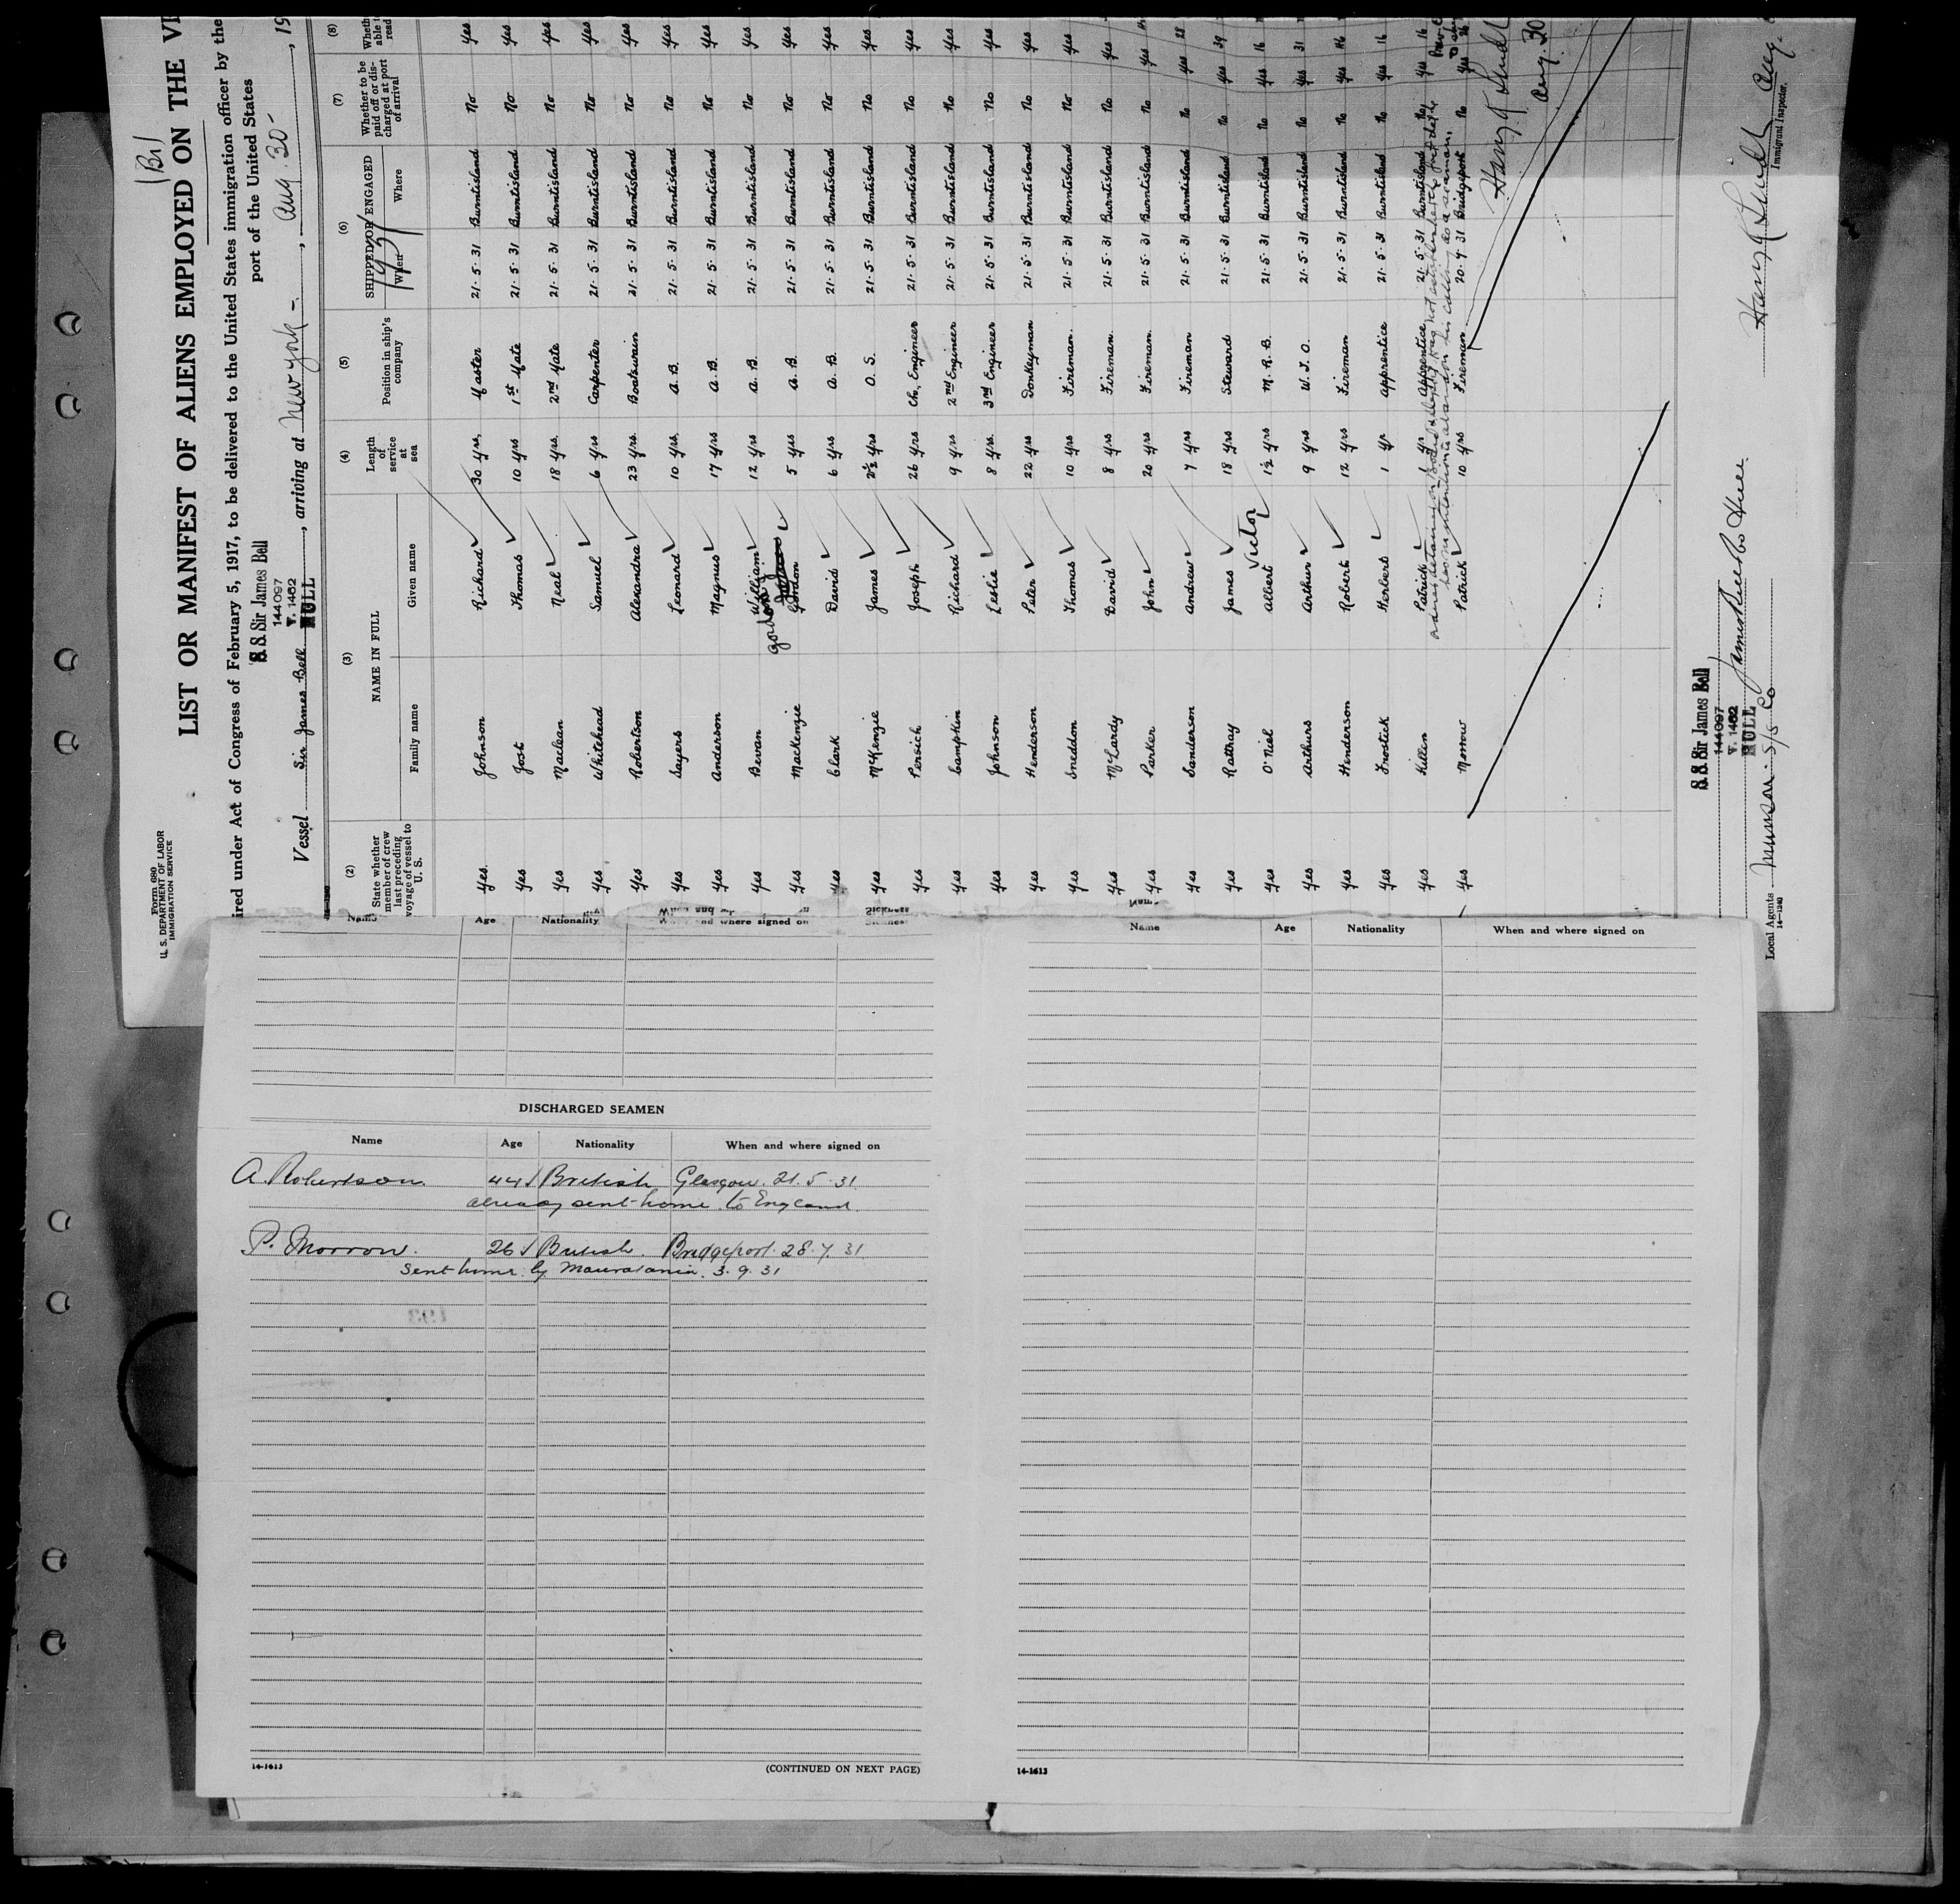 Form 680
U. S. DEPARTMENT OF LABOR
IMMIGRATION SERVICE
(Br)
LIST OR MANIFEST OF ALIENS EMPLOYED ON THE
ired under Act of Congress of February 5, 1917, to be delivered to the United States immigration officer by the
port of the United States
S. S. Sir James Bell
144097
T. 1482
HULL
Vessel Sir James Bell, arriving at New York -, Aug. 30 -, 19
1931
(2) (3) (4) (5) (6) (7) (8)
State whether member of crew last preceding voyage of vessel to U. S.
NAME IN FULL
Family name Given name
Length of service at sea
Position in ship's company
SHIPPED OR ENGAGED
When Where
Whether to be paid off or discharged at port of arrival
Yes. Johnson Richard 30 yrs. Master 21. 5. 31 Burntisland No Yes
Yes Jost Thomas 10 yrs 1st Mate 21. 5. 31 Burntisland No Yes
Yes Maclean Neal 18 yrs. 2nd Mate 21. 5. 31 Burntisland No Yes
Yes Whitehead Samuel 6 yrs Carpenter 21. 5. 31 Burntisland No Yes
Yes Robertson Alexandra 23 yrs. Boatswain 21. 5. 31 Burntisland No Yes
Yes Sayers Leonard 10 yrs. A. B. 21. 5. 31 Burntisland No Yes
Yes Anderson Magnus 17 yrs A. B. 21. 5. 31 Burntisland No Yes
Yes Bevan William 12 yrs A. B. 21. 5. 31 Burntisland No Yes
Yes Mackenzie Gordon 5 yrs A. B. 21. 5. 31 Burntisland No Yes
Yes Clark David 6 yrs A. B. 21. 5. 31 Burntisland No Yes
Yes McKenzie James 2½ yrs O. S. 21. 5. 31 Burntisland No Yes
Yes Persich Joseph 26 yrs Ch. Engineer 21. 5. 31 Burntisland No Yes
Yes Campkin Richard 9 yrs 2nd Engineer 21. 5. 31 Burntisland No Yes
Yes Johnson Leslie 8 yrs. 3rd Engineer 21. 5. 31 Burntisland No Yes
Yes Henderson Peter 22 yrs Donkeyman 21. 5. 31 Burntisland No Yes
Yes Sneddon Thomas 10 yrs Fireman. 21. 5. 31 Burntisland No Yes
Yes McLardy David 8 yrs Fireman. 21. 5. 31 Burntisland No Yes
Yes Parker John 20 yrs Fireman. 21. 5. 31 Burntisland No Yes
Yes Sanderson Andrew 7 yrs Fireman 21. 5. 31 Burntisland No Yes 28
Yes Rattray James 18 yrs Steward 21. 5. 31 Burntisland No Yes 39
Yes O'Niel Albert Victor 1½ yrs M. R. B. 21. 5. 31 Burntisland No Yes 16
Yes Arthurs Arthur 9 yrs W. T. O. 21. 5. 31 Burntisland No Yes 31
Yes Henderson Robert 12 yrs Fireman 21. 5. 31 Burntisland No Yes
Yes Frostick Herbert 1 yr Apprentice 21. 5. 31 Burntisland No Yes 16
Yes Killin Patrick 1 yr Apprentice 21. 5. 31 Burntisland No Yes 16
Yes Morrow Patrick 10 yrs Fireman 20. 7. 31 Bridgeport No Yes
Aug. 30
S. S. Sir James Bell
144097
T. 1482
HULL
Local Agents Munson S/S Co
14—1240
Immigrant Inspector.
Aug.
Name Age Nationality When and where signed on
Name Age Nationality When and where signed on
DISCHARGED SEAMEN
Name Age Nationality When and where signed on
A. Robertson. 44 British Glasgow. 21. 5. 31
already sent home to England.
P. Morrow. 26 British. Bridgeport. 28. 7. 31
Sent home by Mauretania. 3. 9. 31
14-1613
(CONTINUED ON NEXT PAGE)
14-1613